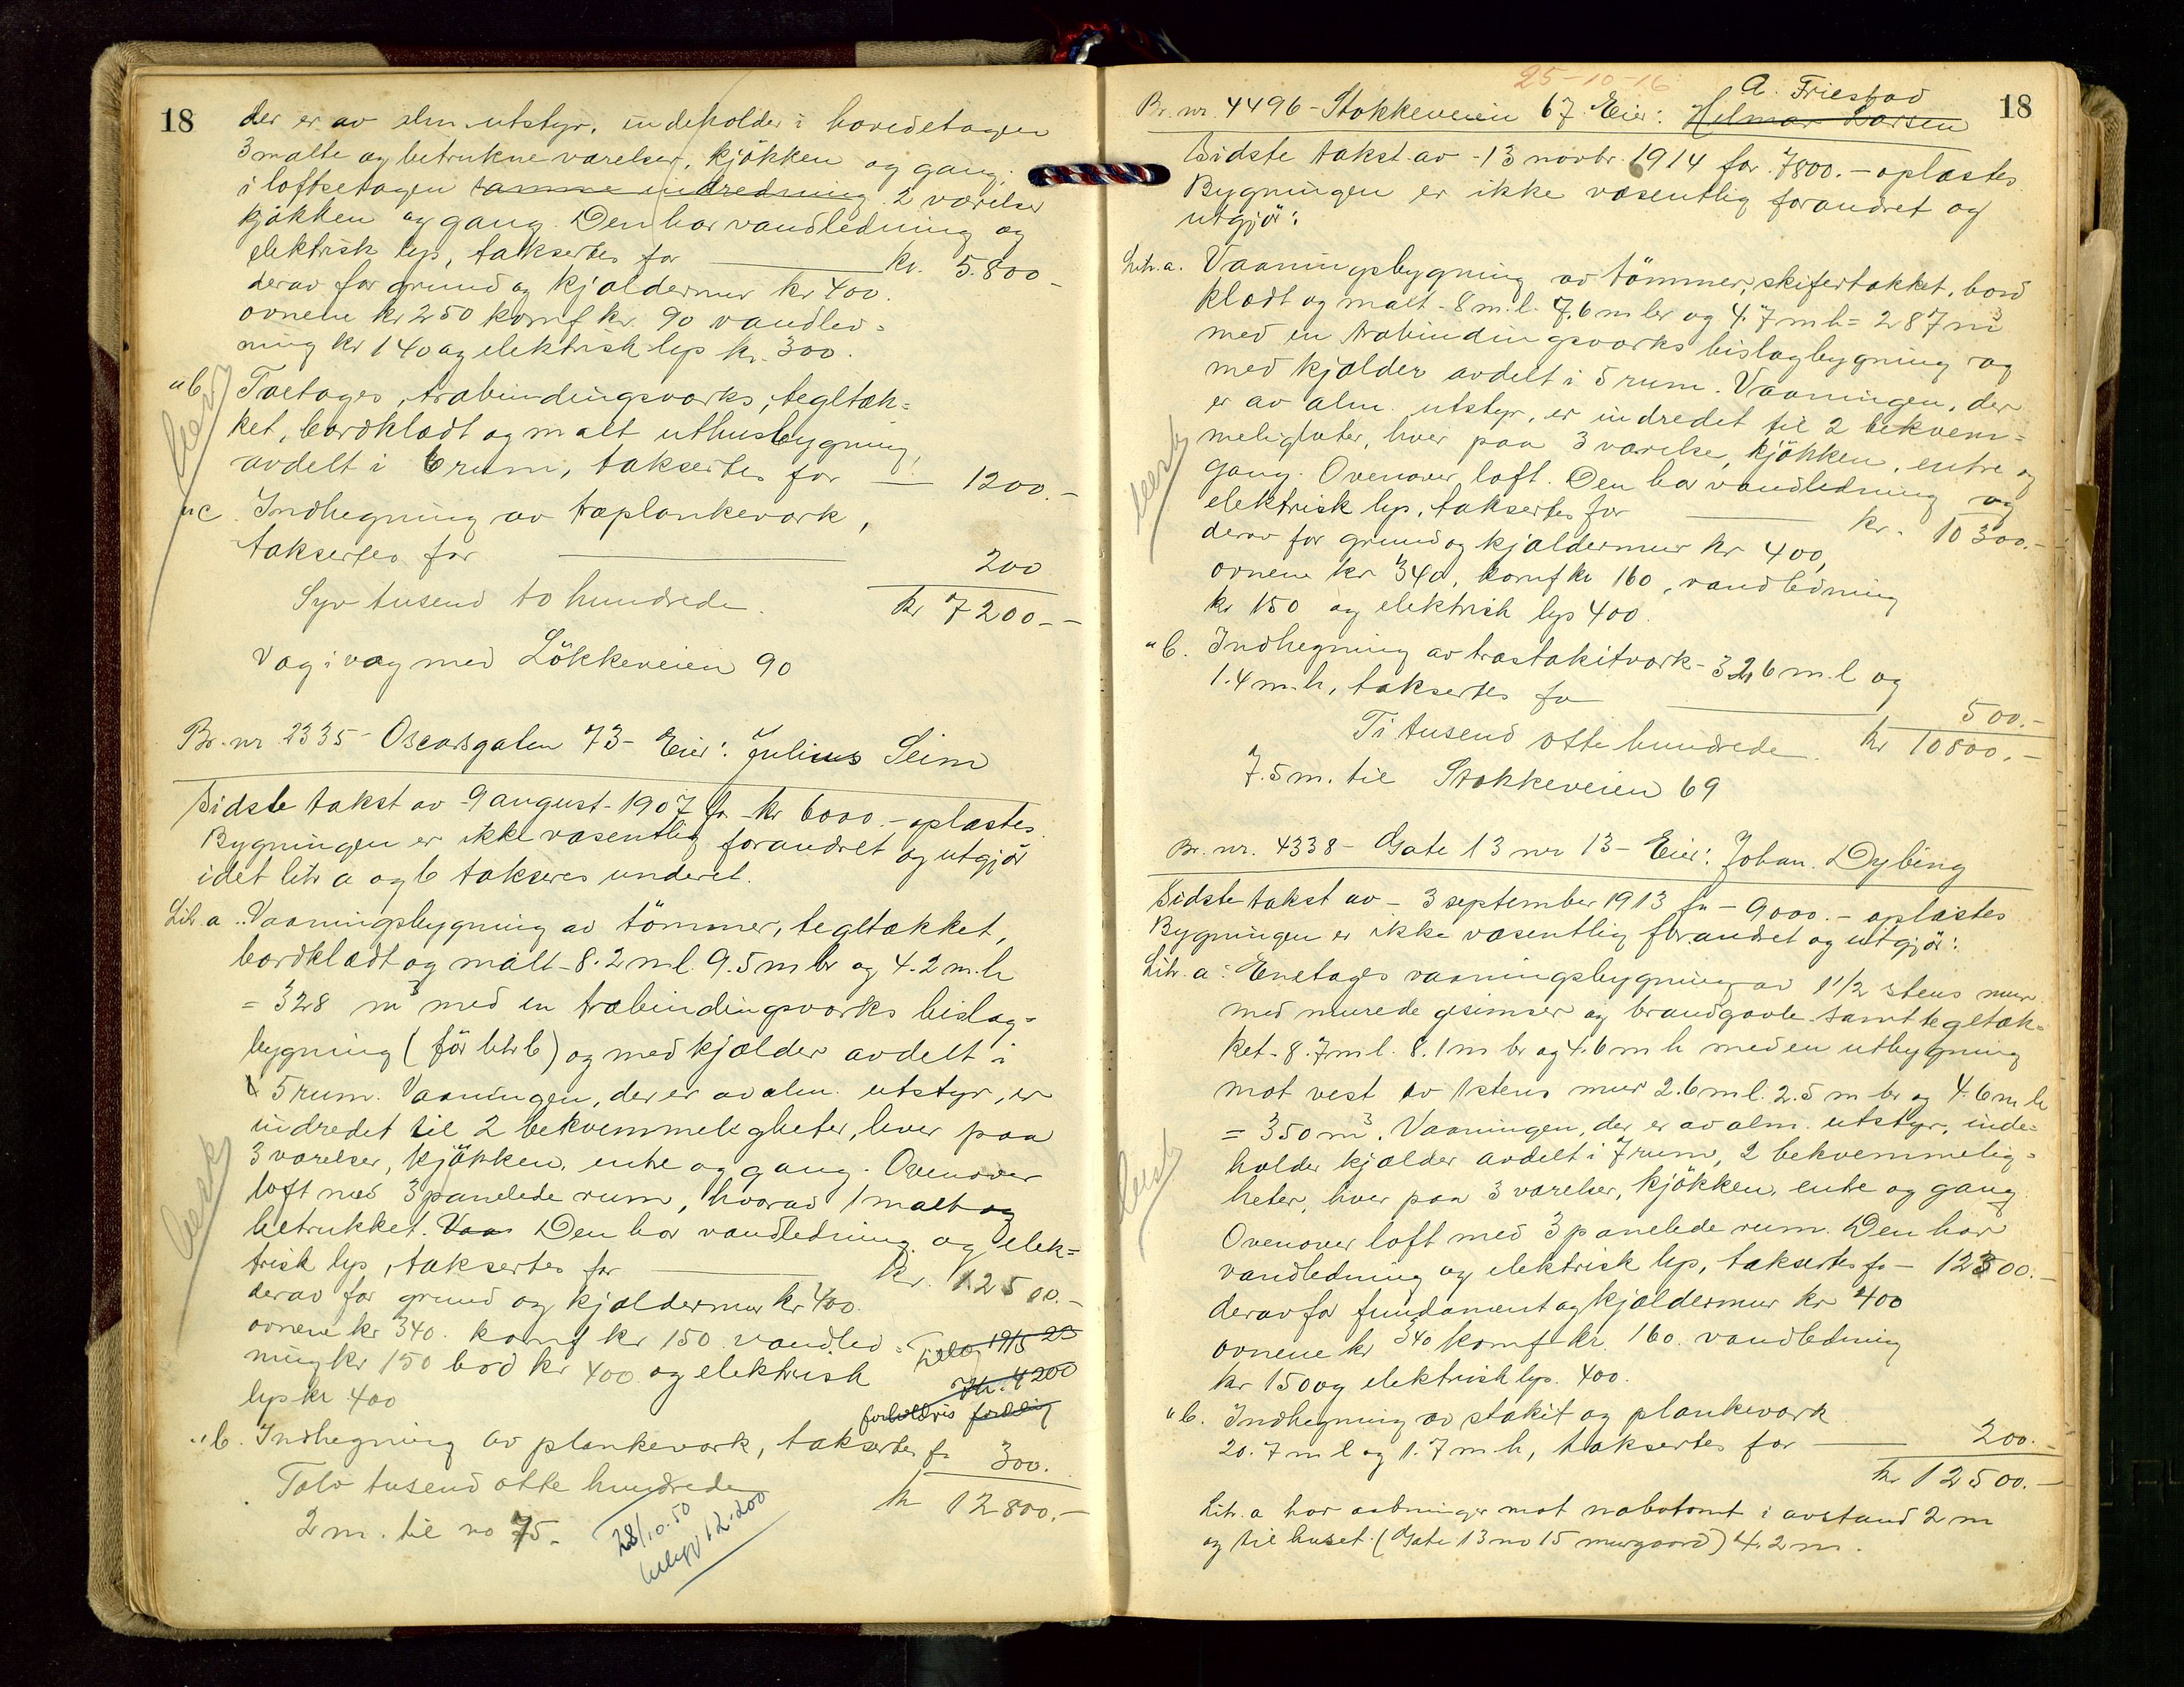 18
der er av alm utstyr, indeholder i hovedetagen
3 malte og betrukne værelser, kjökken og gang;
i loftsetagen samme indredning 2 værelser
kjökken og gang. Den har vandledning og
elektrisk lys, taksertes for kr. 5.800 -
derav for grund og kjældermur kr 400.
ovnene kr 250 komf kr. 90 vandled=
ning kr 140 og elektrisk lys kr. 300.
"b Toetages, træbindingsværks, tegltæk=
ket, bordklædt og malt uthusbygning,
avdelt i 6 rum, taksertes for 1200.-
"c. Indhegning av træplankeverk,
taksertes for 200
Syv tusend to hundrede. kr 7200.-
Væg i væg med Lökkeveien 90
Br. nr 2335 - Oscarsgaten 73 - Eier: Julius Seim
Sidste takst av - 9 august - 1907 for kr 6000.- oplæstes.
Bygningen er ikke væsentlig forandret og utgjör
idet litr a og b takseres underet.
Litr. a. Vaaningsbygning av tömmer, tegltækket,
bordklædt og malt - 8.2 m l. 9.5 m br og 4.2 m. h
= 328 m3 med en træbindingsværks bislag=
bygning (för litr b) og med kjælder avdelt i
5 rum. Vaaningen, der er av alm. utstyr, er
indredet til 2 bekvemmeligheter, hver paa
3 værelser, kjökken, entre og gang. Ovenover
loft med 3 panelede rum, hvorav 1 malt og
betrukket. Vaan Den har vandledning og elek=
trisk lys, taksertes for kr. 12500.-
derav for grund og kjældermur kr 400.
ovnene kr 340. komf kr 150 vandled=
ning kr 150 bod kr 400 og elektrisk
lys kr 400
"b. Indhegning av plankeverk, taksertes for 300.
Tolv tusend otte hundrede kr 12800.-
2 m. til no 75.
28/10.50
12.200
18
25-10-16
A. Friestad
Br. nr. 4496 - Stokkeveien 67. Eier: Helmar Larsen
Sidste takst av - 13 novbr. 1914 for 7800.- oplæstes.
Bygningen er ikke væsentlig forandret og
utgjör:
Litr. a. Vaaningsbygning av tömmer, skifertækket, bord
klædt og malt - 8 m. l. 7.6 m br og 4.7 m h = 287 m3
med en træbindingsværks bislagbygning og
med kjælder avdelt i 5 rum. Vaaningen, der
er av alm. utstyr, er indredet til 2 bekvem=
meligheter, hver paa 3 værelse, kjökken, entre og
gang. Ovenover loft. Den har vandledning og
elektrisk lys, taksertes for kr. 10300.-
derav for grund og kjældermur kr 400,
ovnene kr 340, komf kr 160, vandledning
kr 150 og elektrisk lys 400.
"b. Indhegning av træstakitverk - 32,6 m. l og
1.4 m. h, taksertes for 500.-
Ti tusend otte hundrede. kr 10800.-
7.5 m. til Stokkeveien 69
Br. nr. 4338 - Gate 13 nr 13 - Eier: Johan. Dybing
Sidste takst av - 3 september 1913 for - 9000.- oplæstes
Bygningen er ikke væsentlig forandret og utgjör:
Litr. a: Enetages vaaningsbygning av 1 1/2 stens mur
med murede gesimser og brandgavle samt tegltæk=
ket - 8.7 m l. 8.1 m br og 4.6 m h med en utbygning
mot vest av 1 stens mur 2.6 m l. 2.5 m br og 4.6 m h
= 350 m3. Vaaningen, der er av alm. utstyr, inde=
holder kjælder avdelt i 7 rum, 2 bekvemmelig=
heter, hver paa 3 værelser, kjökken, entre og gang
Ovenover loft med 3 panelede rum. Den har
vandledning og elektrisk lys, taksertes for - 12300.-
derav for fundament og kjældermur kr 400
ovnene kr 340 komf kr. 160. vandledning
kr 150 og elektrisk lys. 400.
"b. Indhegning av stakit og plankeverk
20.7 m l og 1.7 m h, taksertes for 200.-
kr 12500.-
Litr. a har aabninger mot nabotomt i avstand 2 m
og til huset (Gate 13 no 15 murgaard) 4.2 m.